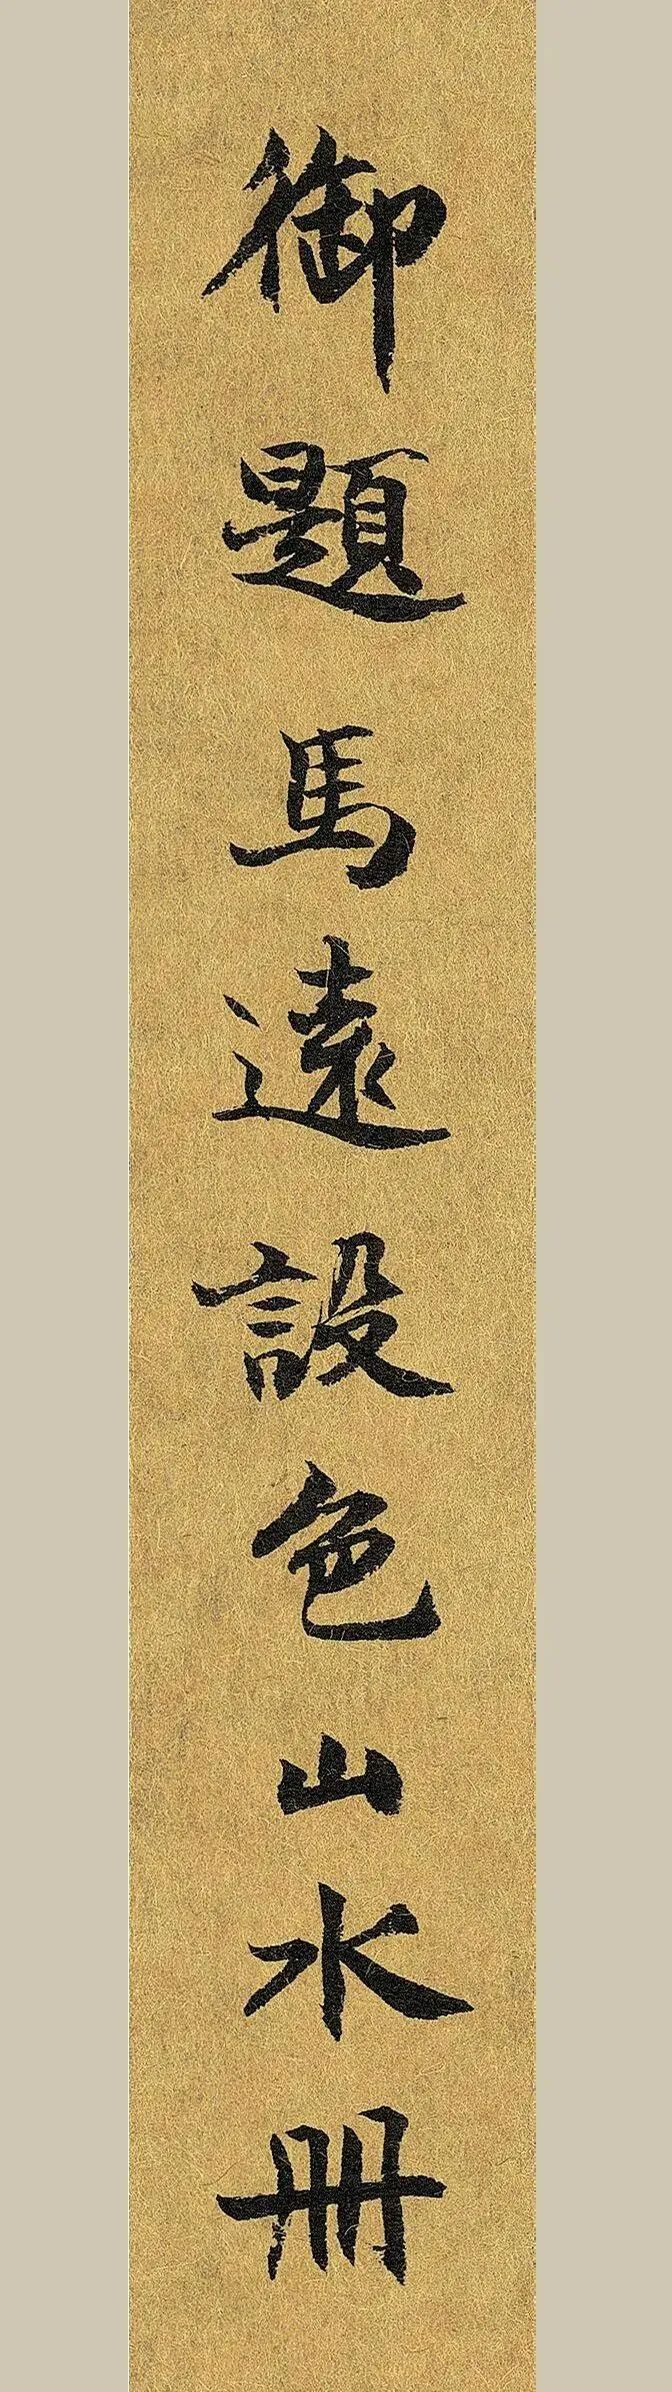 御題馬遠設色山水冊